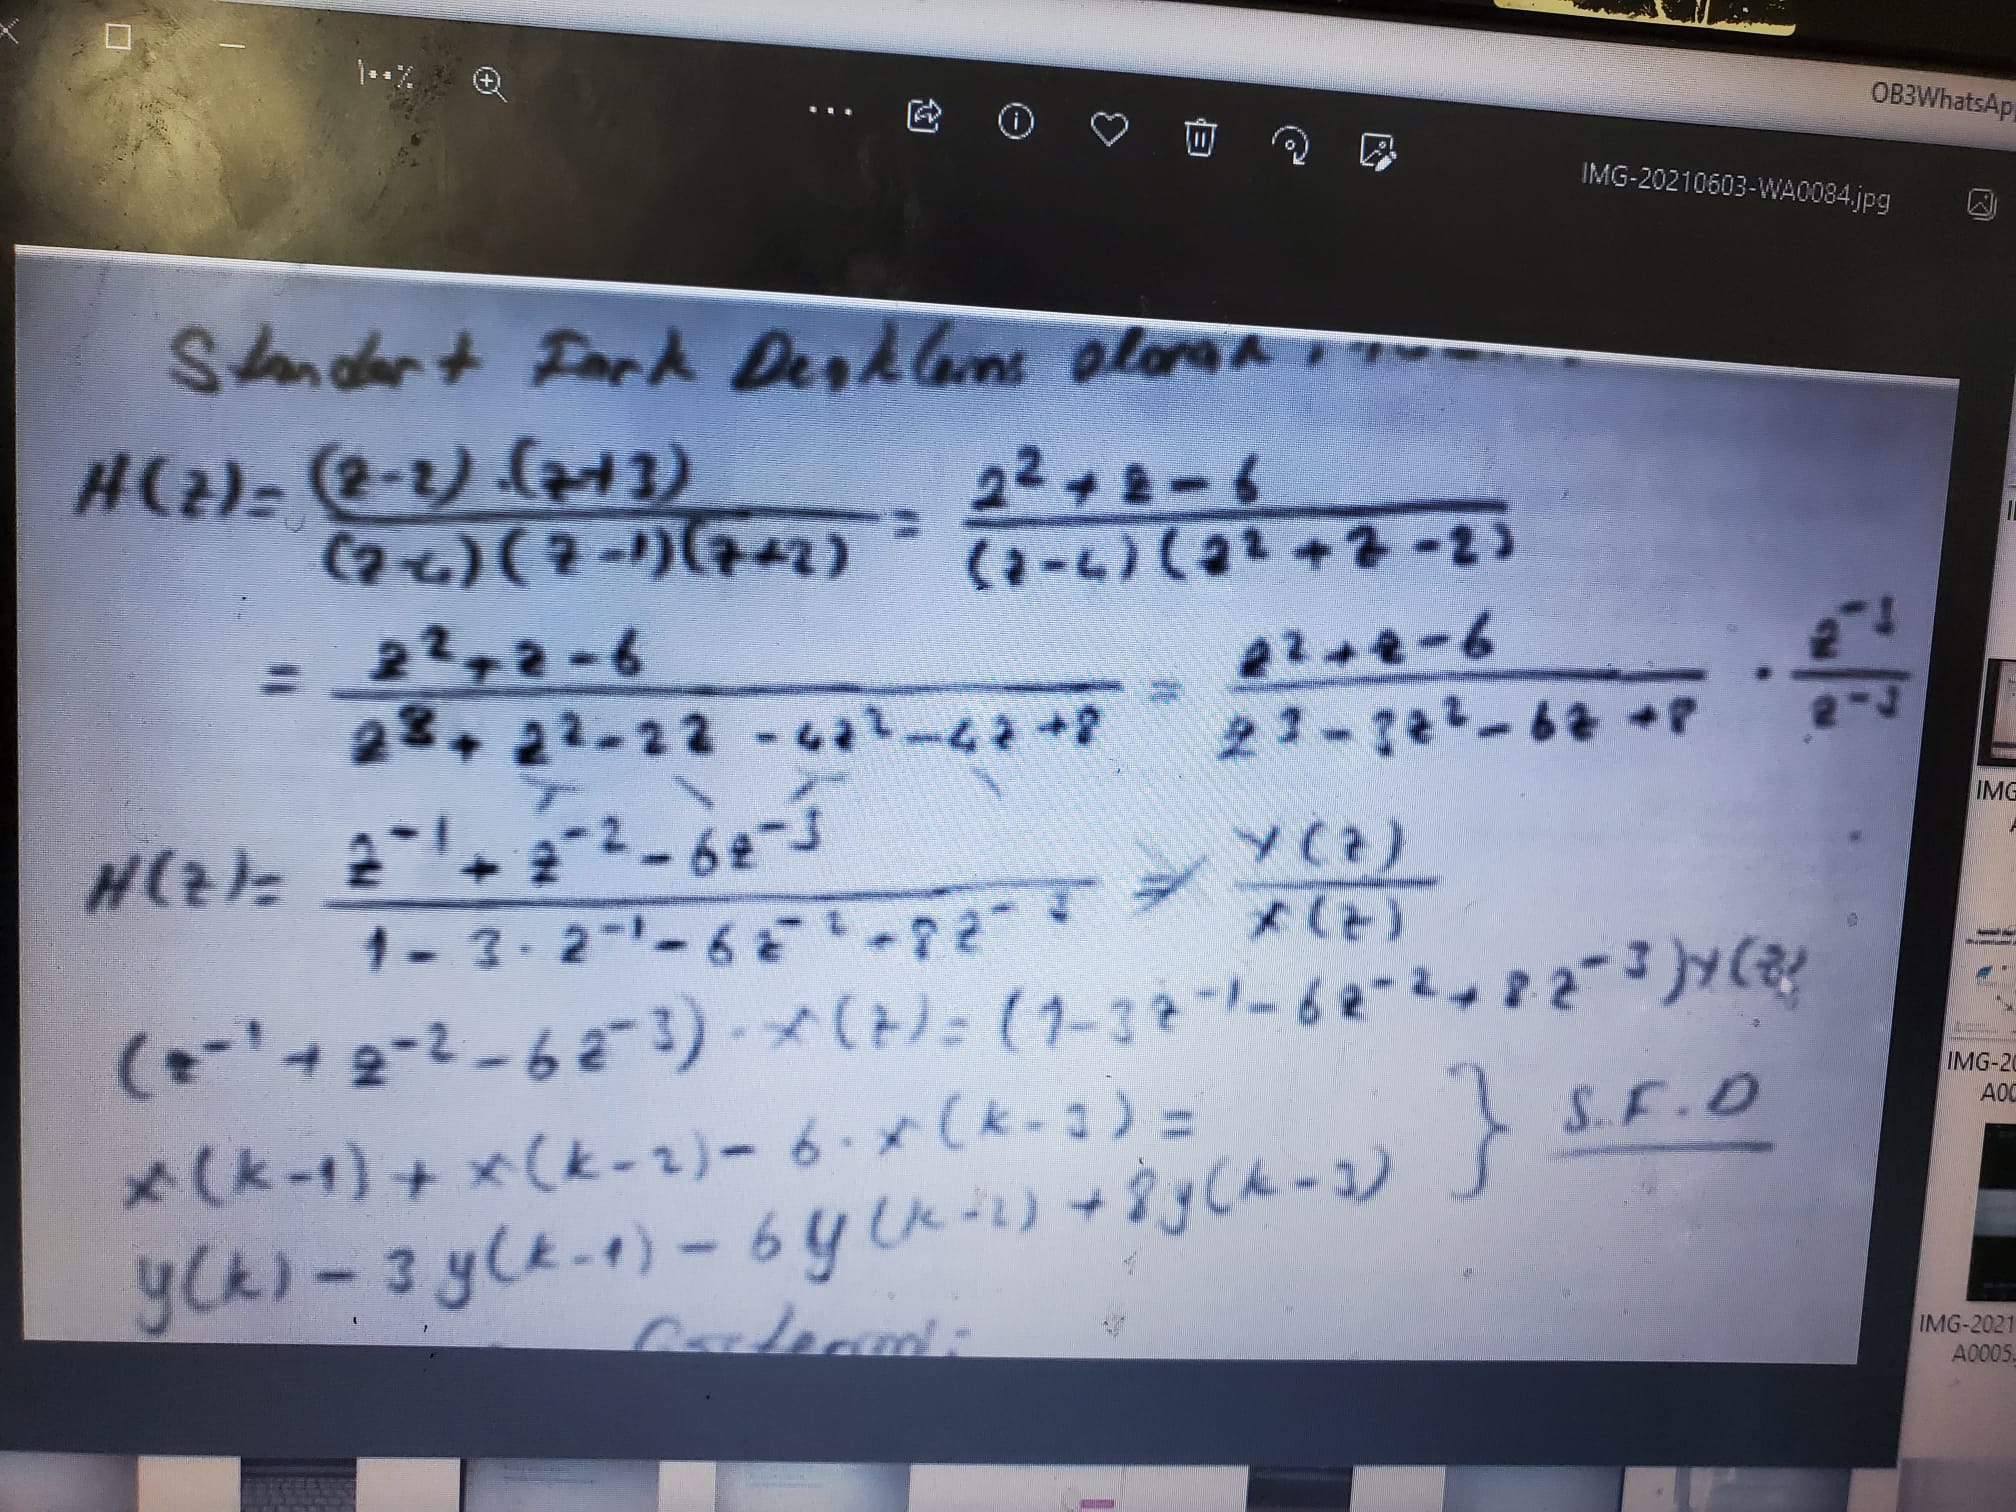 OB3WhatsAp
IMG-20210603-WA0084.jpg
Standart Fark Denklemi olarak
H(z)= (z-2).(z+3) / (z-4)(z-1)(z+2) = z²+z-6 / (z-4)(z²+z-2)
= z²+z-6 / z³+z²-2z-4z²-4z+8 = z²+z-6 / z³-3z²-6z+8 · z⁻³ / z⁻³
H(z)= z⁻¹+z⁻²-6z⁻³ / 1-3·z⁻¹-6z⁻²+8z⁻³ ⇒ Y(z) / X(z)
(z⁻¹+z⁻²-6z⁻³)·X(z)=(1-3z⁻¹-6z⁻²+8z⁻³)Y(z)
x(k-1)+x(k-2)-6·x(k-3)=
y(k)-3y(k-1)-6y(k-2)+8y(k-3) } S.F.D
IMG-20
A00
IMG-2021
A0005.